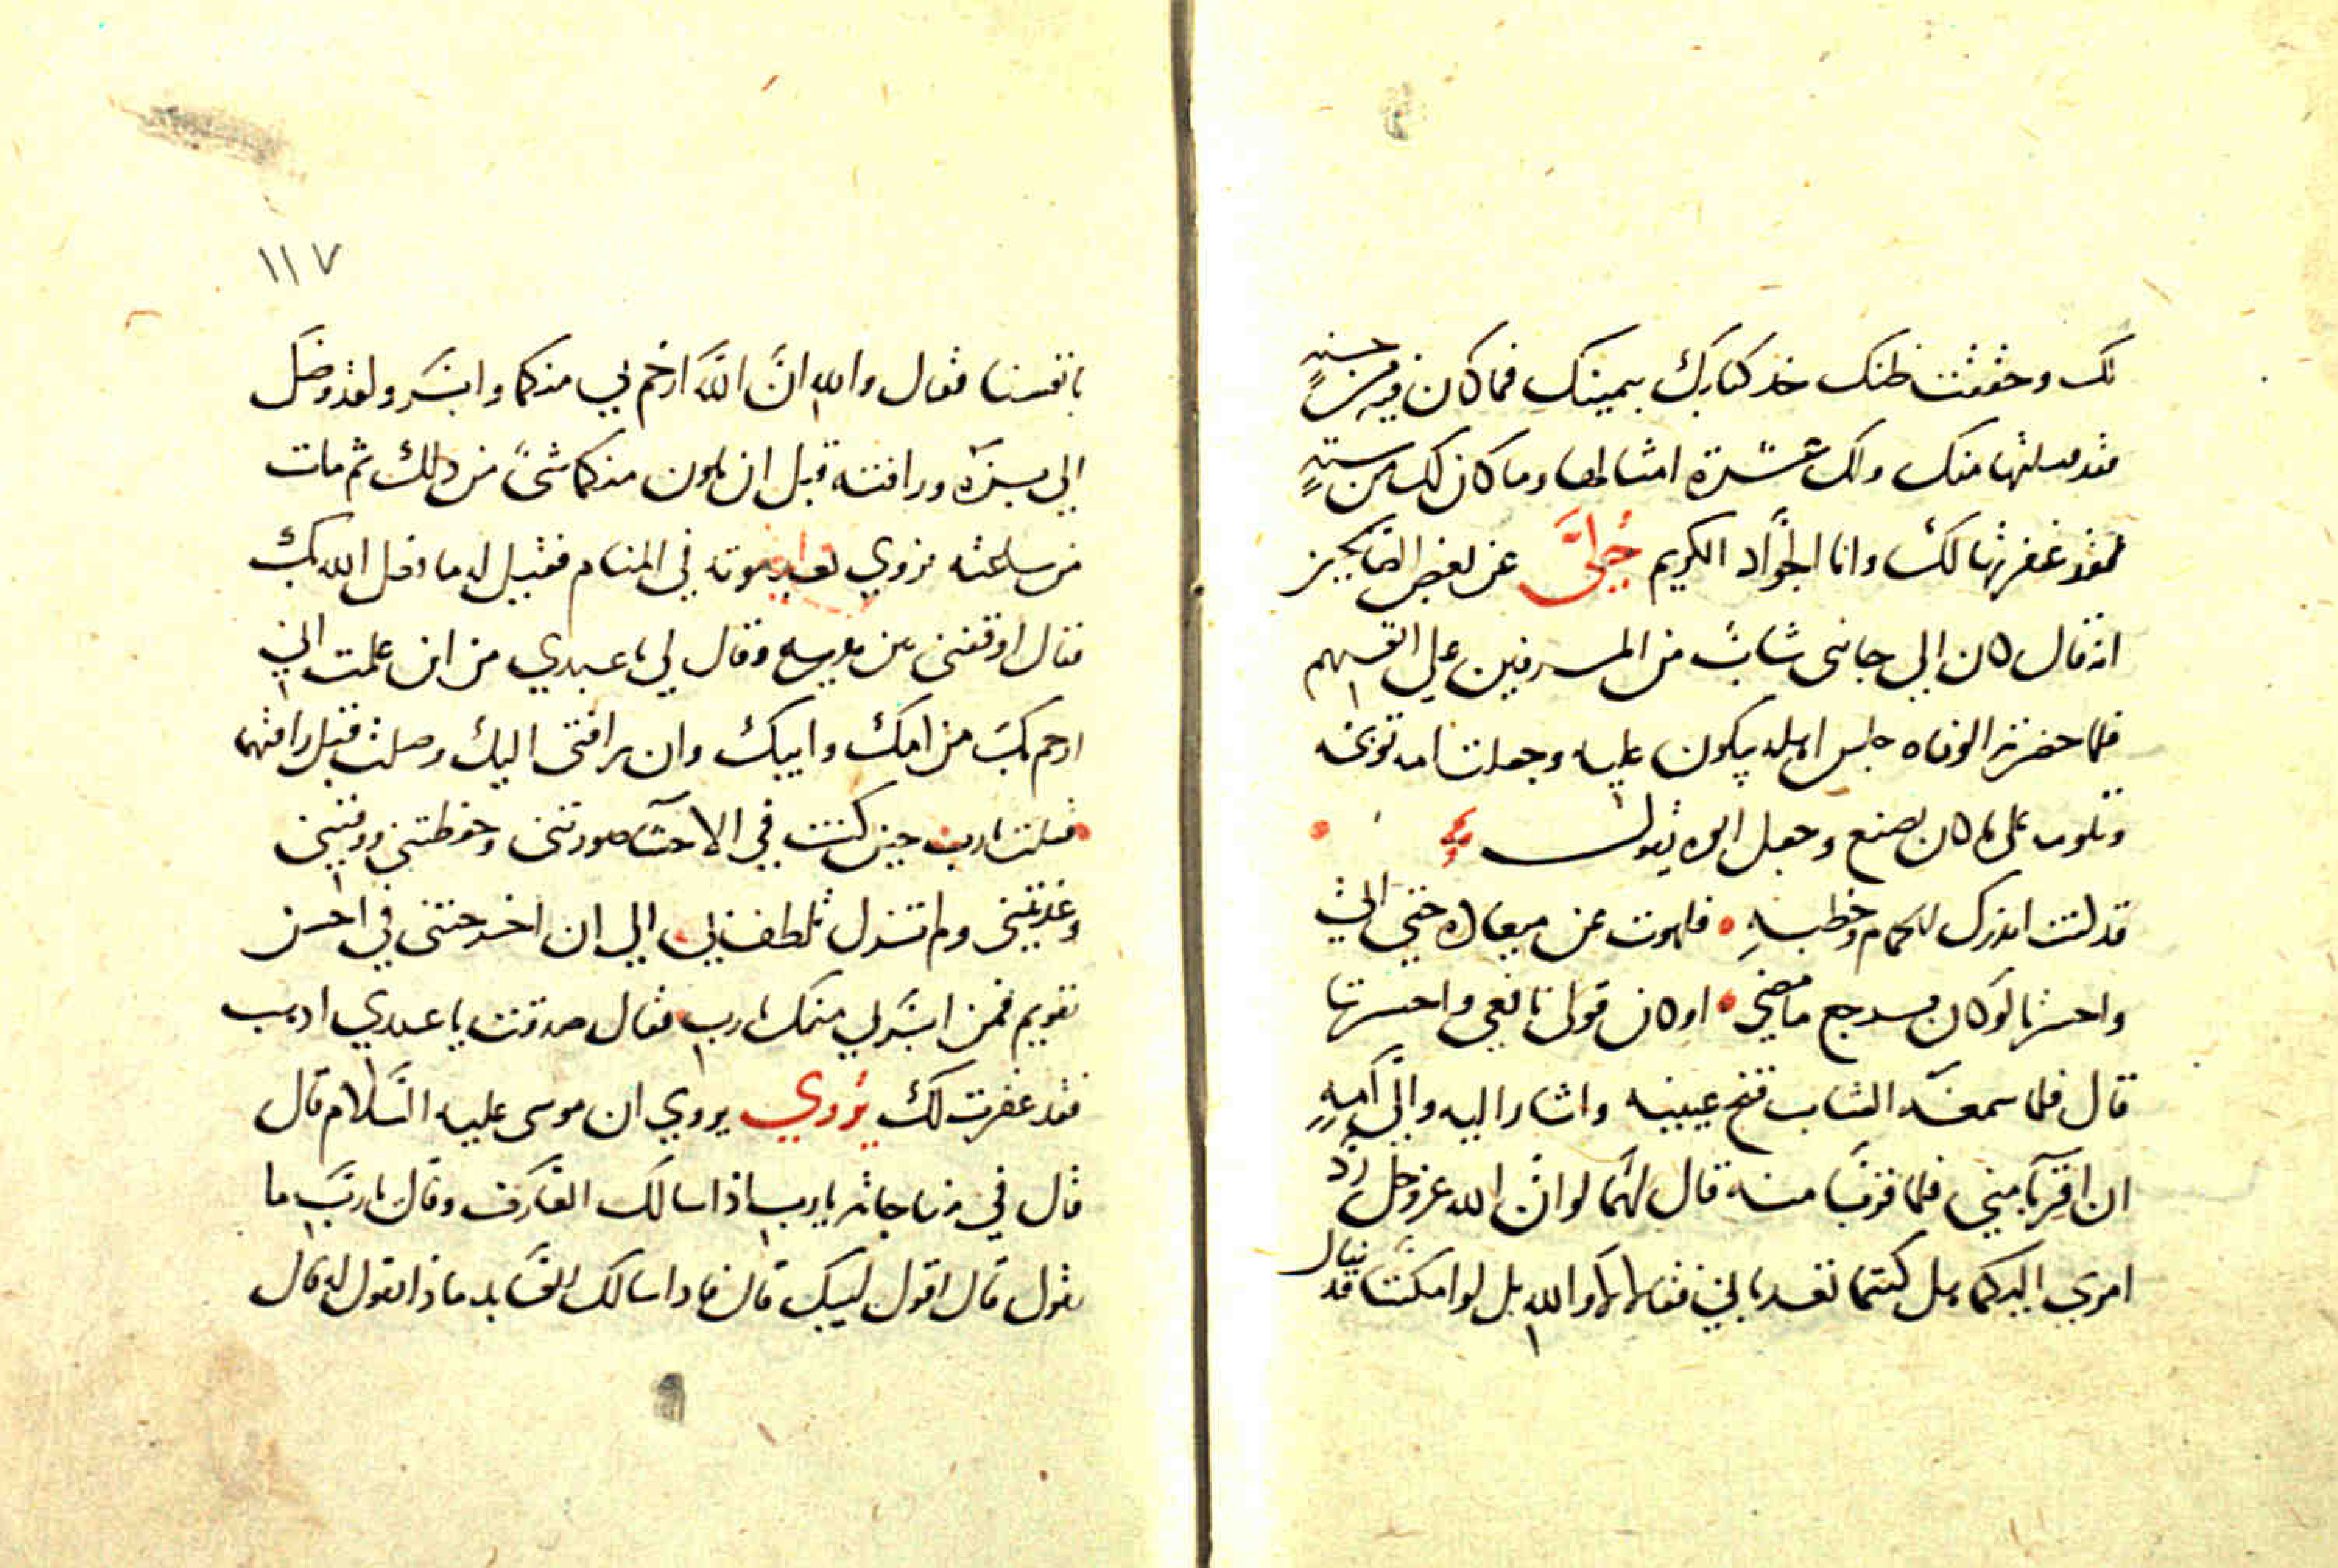 لك وحققت ظنك خذ كتابك بيمينك فما كان فيه من حسنةٍ
فقد قبلتها منك ولك عشرة امثالها وما كان لك من سيئةٍ
فقد غفرتها لك وانا الجوّاد الكريم حُكِيَ عن بعض الصّالحين
انه قال كان الي جانبي شابٌ من المسرفين علي انفسهم
فلما حضرته الوفاه جلس اهله يبكون عليه وجعلت امه توبخه
وتلومه علي ما كان يصنع وجعل ابوه يقول
قد كنت انذرك الحمام وخطبهِ فلهوت عن
واحسرتا لو كان يسترجع ما مضي او كان قولي نافعي واحسرتا
قال فلما سمعه الشاب فتح عينيه واشار اليه والي امهِ
ان اقربا مني فلما قربا منه قال لهما لو انّ الله عز وجل ردّ
امري اليكما هل كنتما تعذباني فقالا لا والله بل لو امكننا
١١٧
بانفسنا فقال والله انّ اللّه ارحم بي منكما وابرّ ولقد وصل
الي برّه ورافته قبل ان يكون منكما شيءً من ذلك ثم مات
من ساعته فروي بعد موته في المنام فقيل له ما فعل الله بك
فقال اوقفني بين يديه وقال لي يا عبدي من اين علمت اني
ارحم بك من امك وابيك وان رافتي اليك وصلت قبل رافتهما
فقلت يارب حين كنت في الاحشآ صورتني وحفظتني ووقيتني
وغذيتني ولم تزل تلطف بي الي ان اخرجتني في احسن
تقويم فمن ابرّ لي منك يارب فقال صدقت يا عبدي اذهب
فقد غفرت لك يُروي يروي ان موسي عليه السّلام قال
قال في مناجاته يارب اذا سالك العارف وقال يا ربّ ما
تقول قال اقول لبيك قال فاذا سالك العابد ماذا تقول له قال